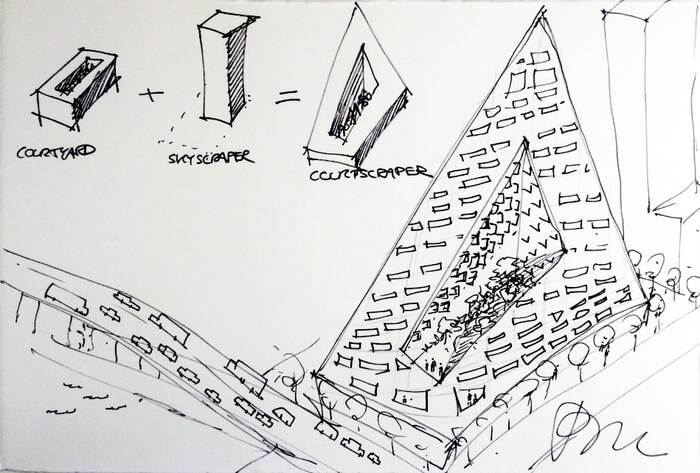 COURTYARD
+
SKYSCRAPER
=
COURTSCRAPER